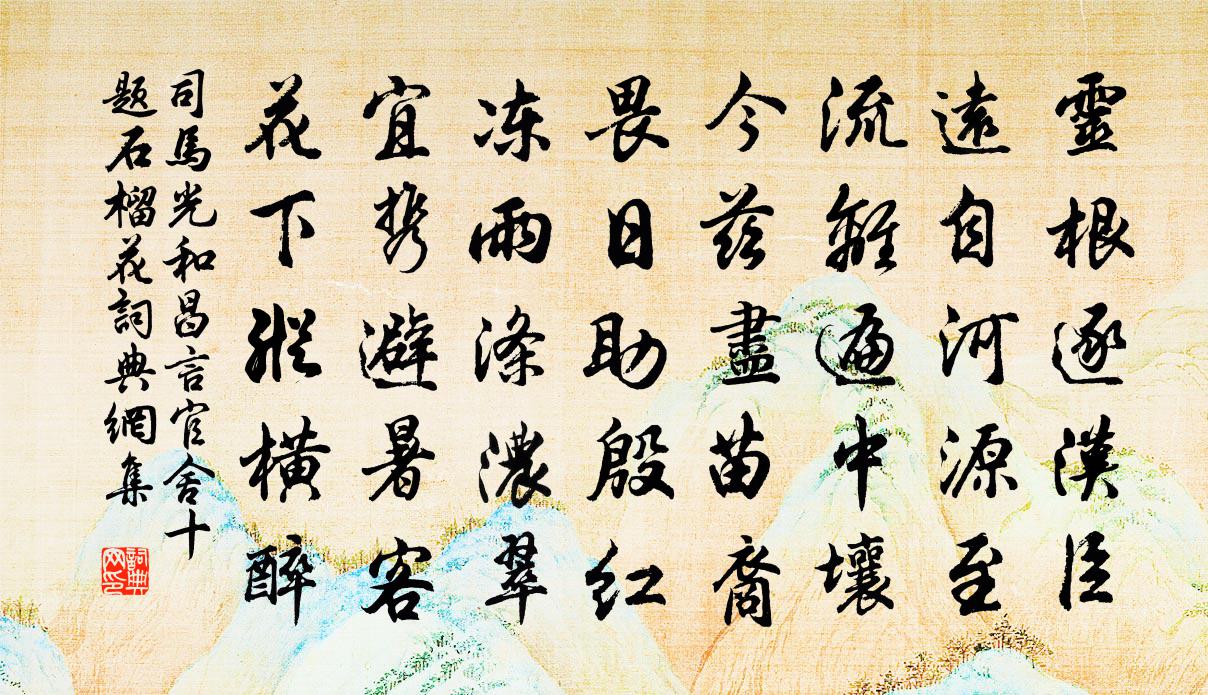 靈根逐漢臣
遠自河源至
流離遍中壤
今茲盡苗裔
畏日助殷紅
冻雨滌濃翠
宜携避暑客
花下縱橫醉
司馬光和昌言官舍十
题石榴花詞典網集
詞典
网印